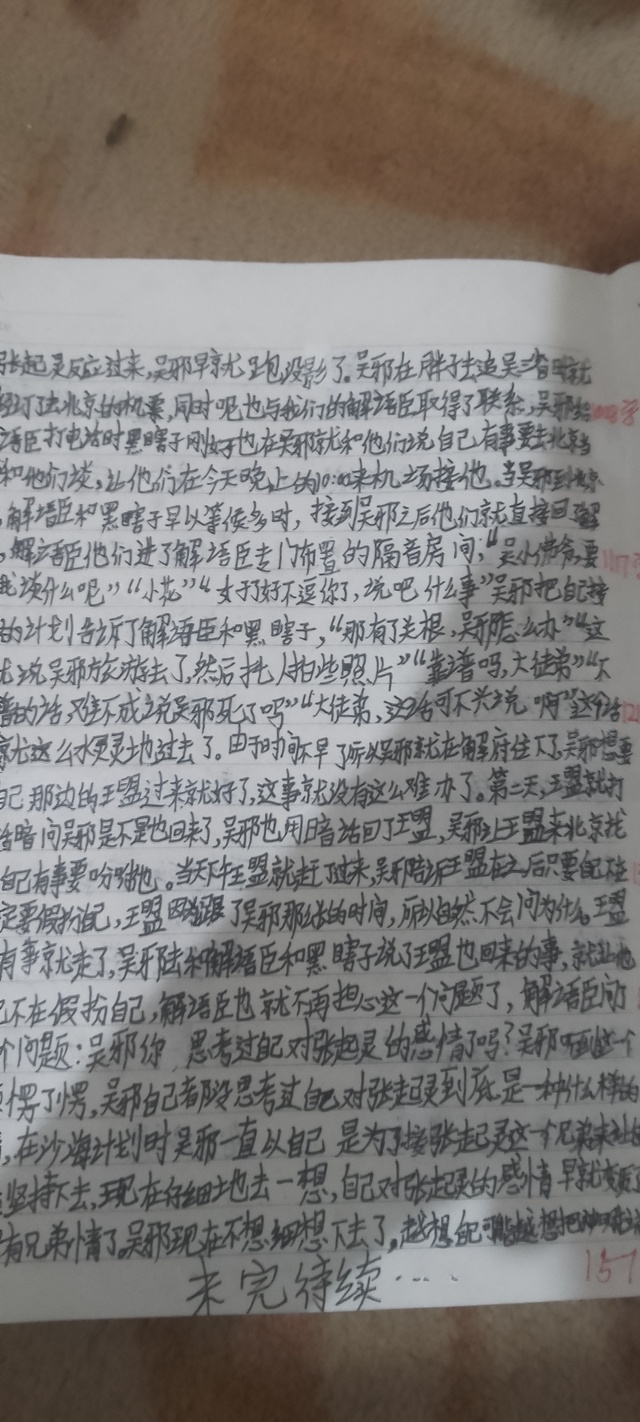 张起灵反应过来，吴邪早就跑没影了。吴邪在胖子去追吴三省时就
经订了去北京的机票，同时呢也与我们的解语臣取得了联系，吴邪给
语臣打电话时黑瞎子刚好也在吴邪就和他们说自己有事要去北京当
和他们谈，让他们在今天晚上的10:00来机场接他。当吴邪到北京
，解语臣和黑瞎子早以等候多时，接到吴邪之后他们就直接回了解
，解语臣他们进了解语臣专门布置的隔音房间，“吴小佛爷，要
我谈什么呢”“小花”“好了好不逗你了，说吧什么事”吴邪把自己接
的计划告诉了解语臣和黑瞎子，“那有了关根，吴邪怎么办”“这
就说吴邪旅游去了，然后托人拍些照片”“靠谱吗，大徒弟”“不
普的话，难不成说吴邪死了吗”“大徒弟，这话可不兴说啊”这个话
就这么水灵灵地过去了。由于时间不早了所以吴邪就在解府住下了。吴邪想要
自己那边的王盟过来就好了，这事就没有这么难办了。第二天，王盟就打
话暗问吴邪是不是也回来了，吴邪也用暗话回了王盟，吴邪让王盟来北京找
自己有事要吩咐他。当天下午王盟就赶了过来，吴邪告诉王盟在之后只要自己不在
定要假扮自己，王盟因为跟了吴邪那么长的时间，所以自然不会问为什么。王盟
有事就走了，吴邪去和解语臣和黑瞎子说了王盟也回来的事，就让他
己不在假扮自己，解语臣也就不再担心这一个问题了，解语臣问了
个问题：吴邪你思考过自己对张起灵的感情了吗？吴邪听到这一个
愣了愣，吴邪自己都没思考过自己对张起灵到底是一种什么样的
，在沙海计划时吴邪一直以自己是为了接张起灵这一个兄弟来
坚持下去，现在仔细地去一想，自己对张起灵的感情早就变质了
有兄弟情了。吴邪现在不想细想下去了，越想自己可能越想把
未完待续……
157